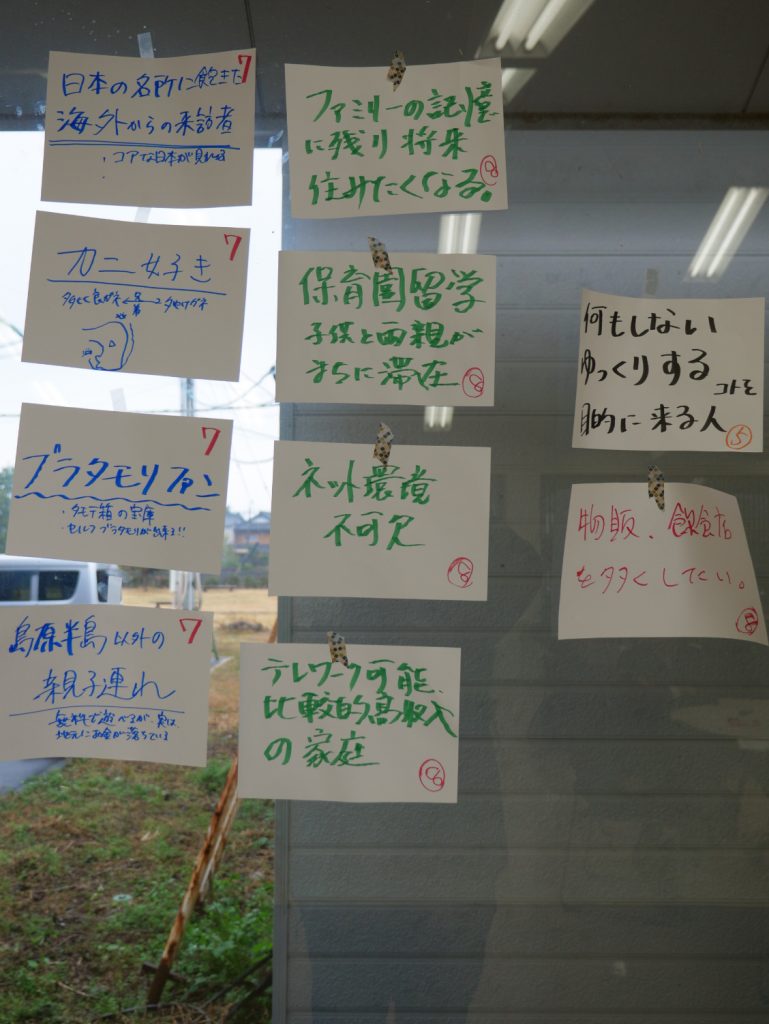 日本の名所に飽きた
7
海外からの来訪者
・コアな日本が見れる
カニ好き
7
ブラタモリファン
7
・タモテ箱の宝庫
・セルフブラタモリが出来る!!
島原半島以外の
7
親子連れ
無料で遊べるが、実は
地元にお金が落ちている
ファミリーの記憶
に残り将来
住みたくなる。
保育園留学
子供と両親が
まちに滞在
ネット環境
不可欠
テレワーク可能、
比較的高収入
の家庭
何もしない
ゆっくりする
コトを
目的に来る人
5
物販、飲食店
を多くしたい。